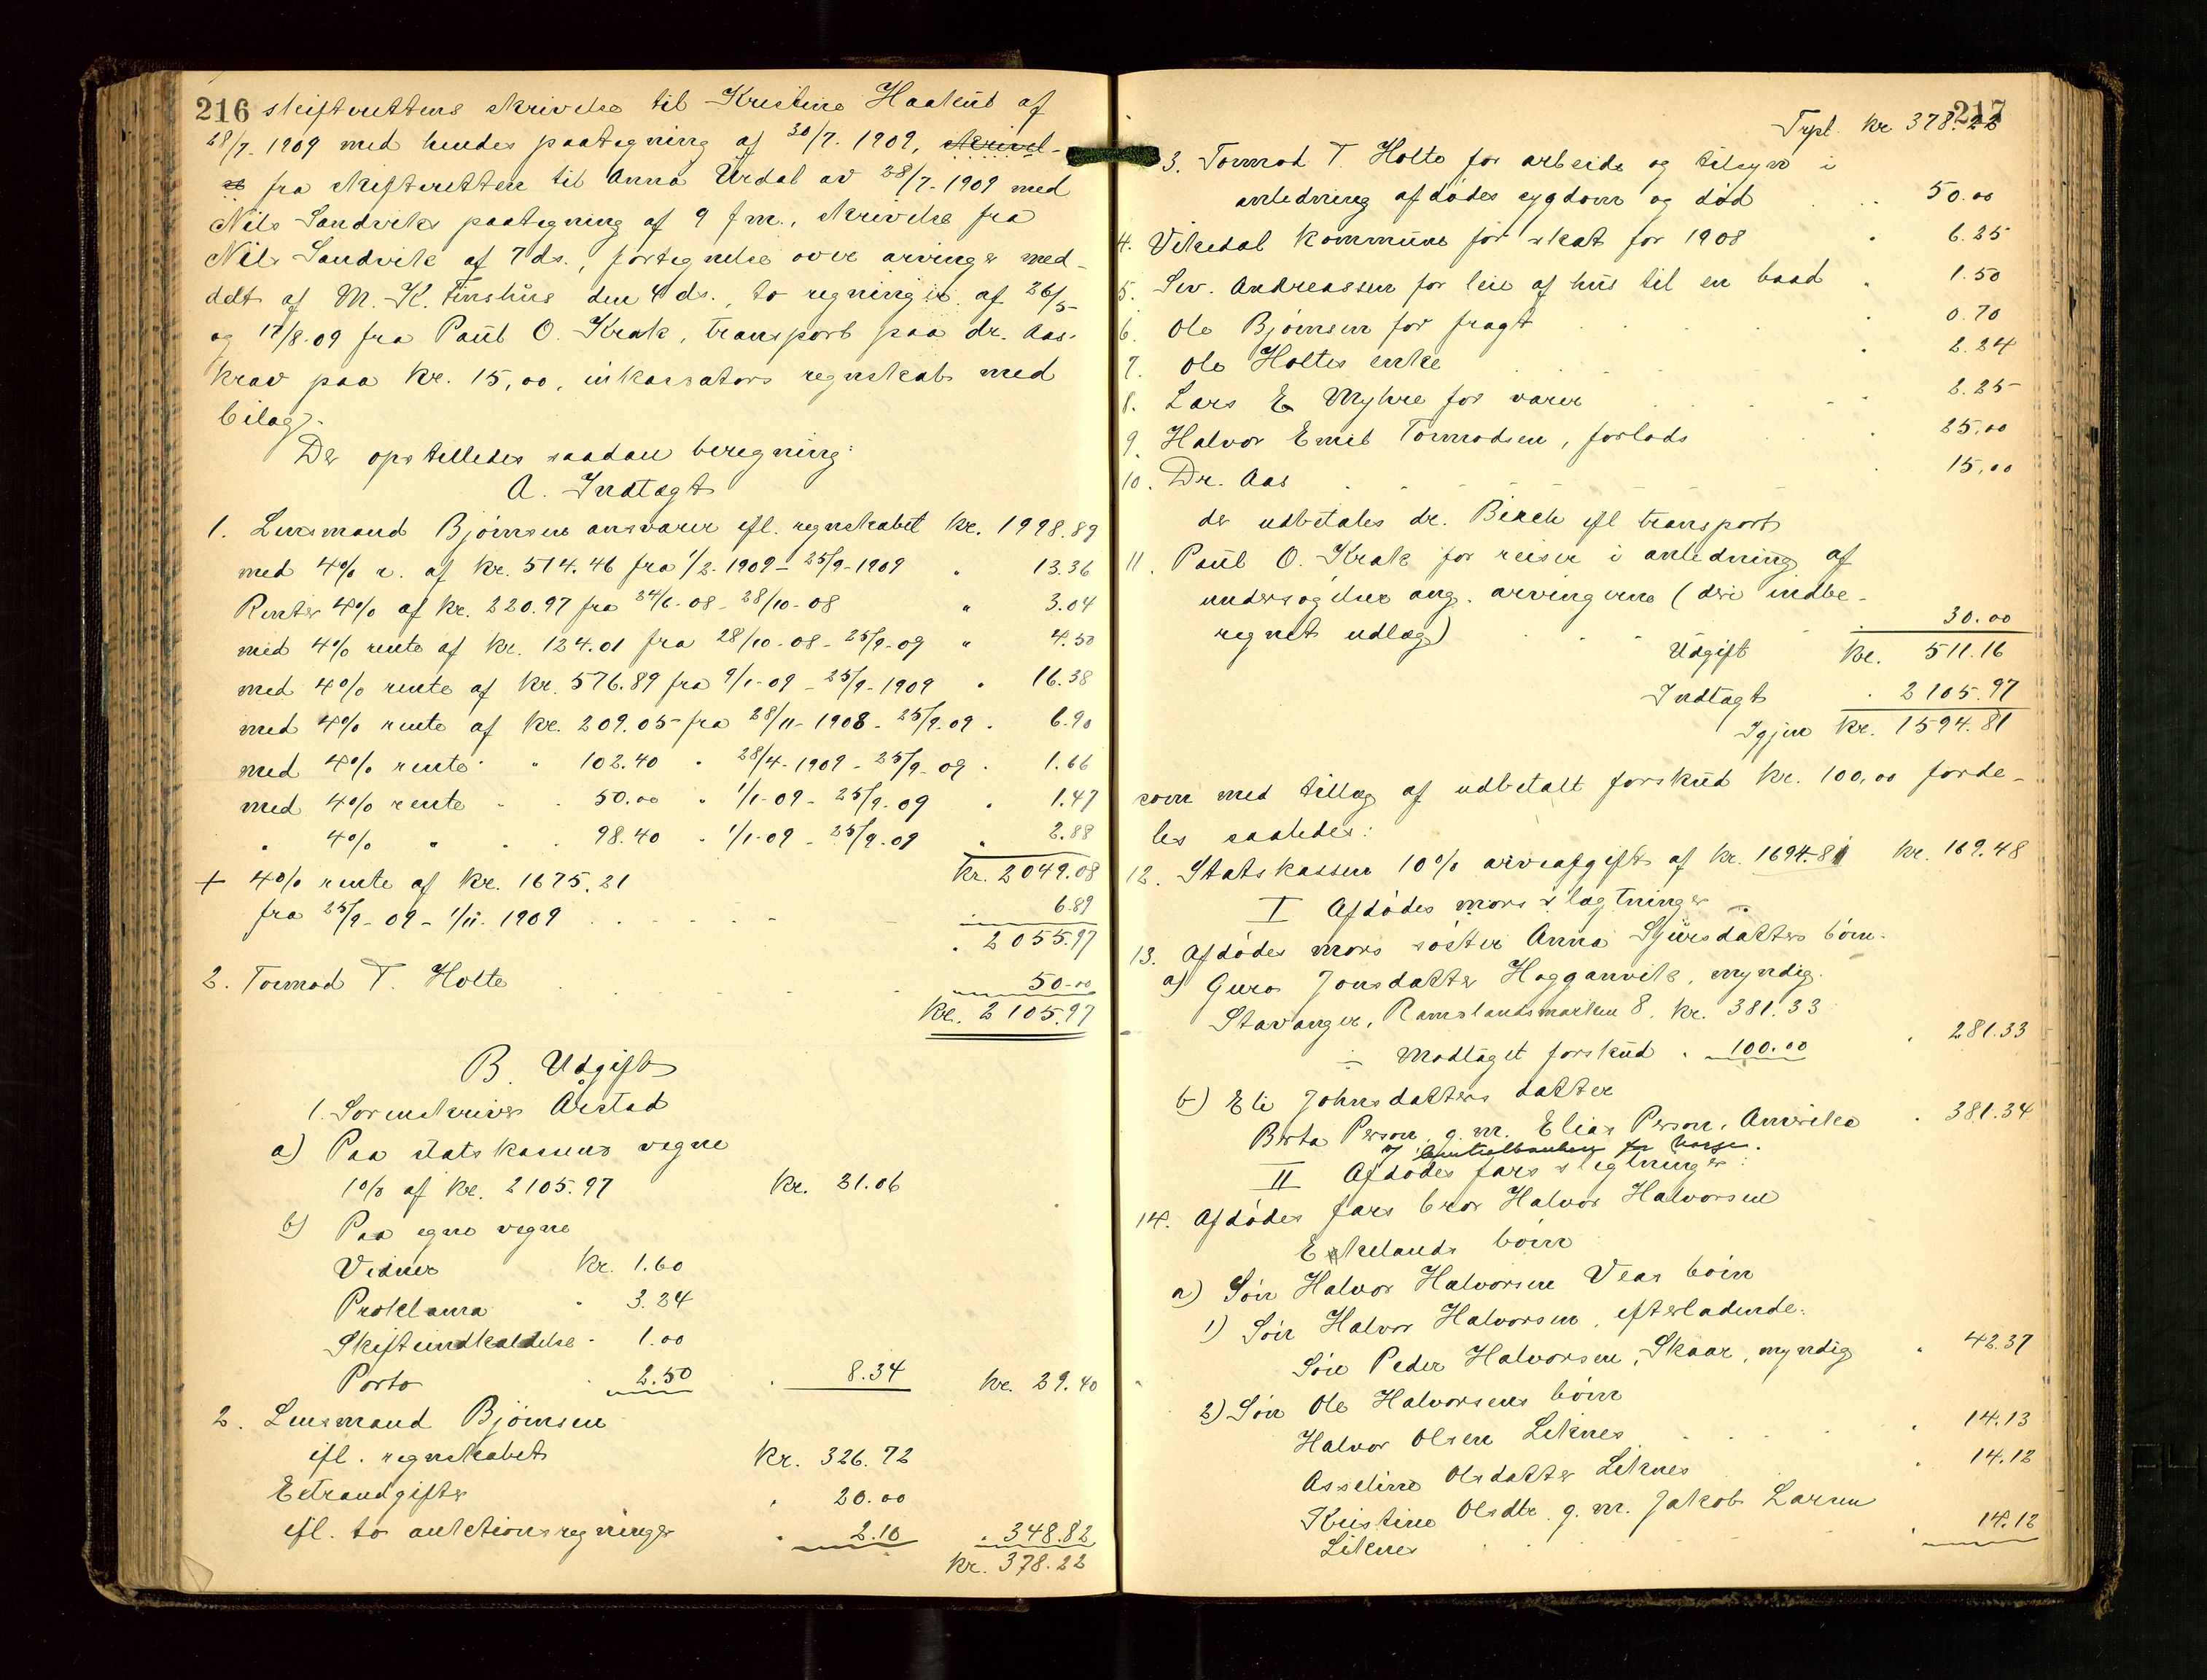 216 skifterettens skrivelse til Kristine Haakul af
28/7. 1909 med hendes paategning af 30/7. 1909, skrivel-
se fra skifteretten til Anna Urdal av 28/7. 1909 med
Nils Sandviks paategning af 9 f.m., skrivelse fra
Nils Sandvik af 7 ds., fortegnelse over arvinger med-
delt af M. K. Finshus den 4 ds., to regninger af 26/5
og 17/8.09 fra Paul O. Krak, transport paa dr. Aas.
krav paa kr. 15,00, inkassators regnskab med
bilag.
Der opstilledes saadan beregning:
A. Indtægt
1. Lensmand Bjørnsen ansvarer efl. regnskabet kr. 1998.89
med 4% r. af kr. 514.46 fra 1/2-1909-25/9-1909 " 13.36
Renter 4% af kr. 220.97 fra 24/6-08-28/10-08 " 3.04
med 4% rente af kr. 124.01 fra 28/10-08-25/9-09 " 4.50
med 4% rente af kr. 576.89 fra 9/1-09-25/9-1909 " 16.38
med 4% rente af kr. 209.05 fra 28/11-1908-25/9.09 " 6.90
med 4% rente " " 102.40 " 28/4-1909-25/9-09 " 1.66
med 4% rente " " 50.00 " 1/1-09-25/9.09 " 1.47
" 4% " " " 98.40 " 1/1-09-25/9.09 " 2.88
kr. 2049.08
+ 4% rente af kr. 1675.21
fra 25/9-09-1/11.1909 6.89
" 2055.97
2. Tormod T. Holte 50.00
kr. 2105.97
B. Udgift
1. Sorenskriver Aarstad
a) Paa statskassens vegne
1% af kr. 2105.97 kr. 21.06
b) Paa egne vegne
Vidner kr. 1.60
Proklama " 3.24
Skifteindkaldelse " 1.00
Porto " 2.50 " 8.34 kr. 29.40
2. Lensmand Bjørnsen
efl. regnskabet kr. 326.72
Extraudgifter " 20.00
efl. to auktionsregninger " 2.10 " 348.82
kr. 378.22
217
Trpt. kr 378.22
3. Tormod T. Holte for arbeide og tilsyn i
anledning afdødes sygdom og død 50.00
4. Vikedal kommune for skat for 1908 " 6.25
5. Sev. Andreassen for leie af hus til en baad " 1.50
6. Ole Bjørnsen for fragt " 0.70
7. Ole Holtes enke " 2.24
8. Lars E Myhre for varer " 2.25
9. Halvor Emil Tormodsen, forlods " 25,00
10. Dr. Aas " 15,00
der udbetales dr. Birch efl transport
11. Paul O. Krak for reiser i anledning af
undersøgelser ang. arvingerne (deri indbe-
regnet udlæg) 30.00
Udgift kr. 511.16
Indtægt " 2105.97
Igjen kr. 1594.81
som med tillæg af udbetalt forskud kr. 100,00 forde-
les saaledes:
12. Statskassen 10% arveafgift af kr. 1694.81 kr. 169.48
I Afdødes mors slægtninger
13. Afdødes mors søster Anna Sjursdatters børn.
a) Guro Jonsdatter Hogganvik, myndig.
Stavanger, Ramslandsmarken 8. kr. 381.33
÷ Modtaget forskud " 100.00 " 281.33
b) Eli Johnsdatters datter
Berta Person, g. m. Elias Person, Amerika " 381.34
II Afdødes fars slegtninger:
14. Afdødes fars bror Halvor Halvorsen
Eskelands børn
a) Søn Halvor Halvorsen Veas børn
1) Søn Halvor Halvorsen, efterladende.
Søn Peder Halvorsen, Skaar, myndig " 42.37
2) Søn Ole Halvorsens børn
Halvor Olsen Liknes " 14.13
Asseline Olsdatter Liknes " 14.12
Kristine Olsdtr. g. m. Jakob Larsen
Liknes " 14.12